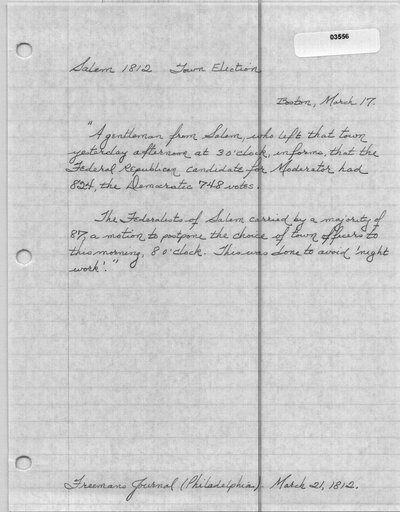 03556
Salem 1812 Town Election
Boston, March 17.
"A gentleman from Salem, who left that town
yesterday afternoon at 3 o'clock, informs, that the
Federal Republican candidate for Moderator had
824, the Democratic 748 votes.
The Federalists of Salem carried by a majority of
87, a motion to postpone the choice of town officers to
this morning, 8 o'clock. This was done to avoid 'night
work'."
Freemans Journal (Philadelphia). March 21, 1812.